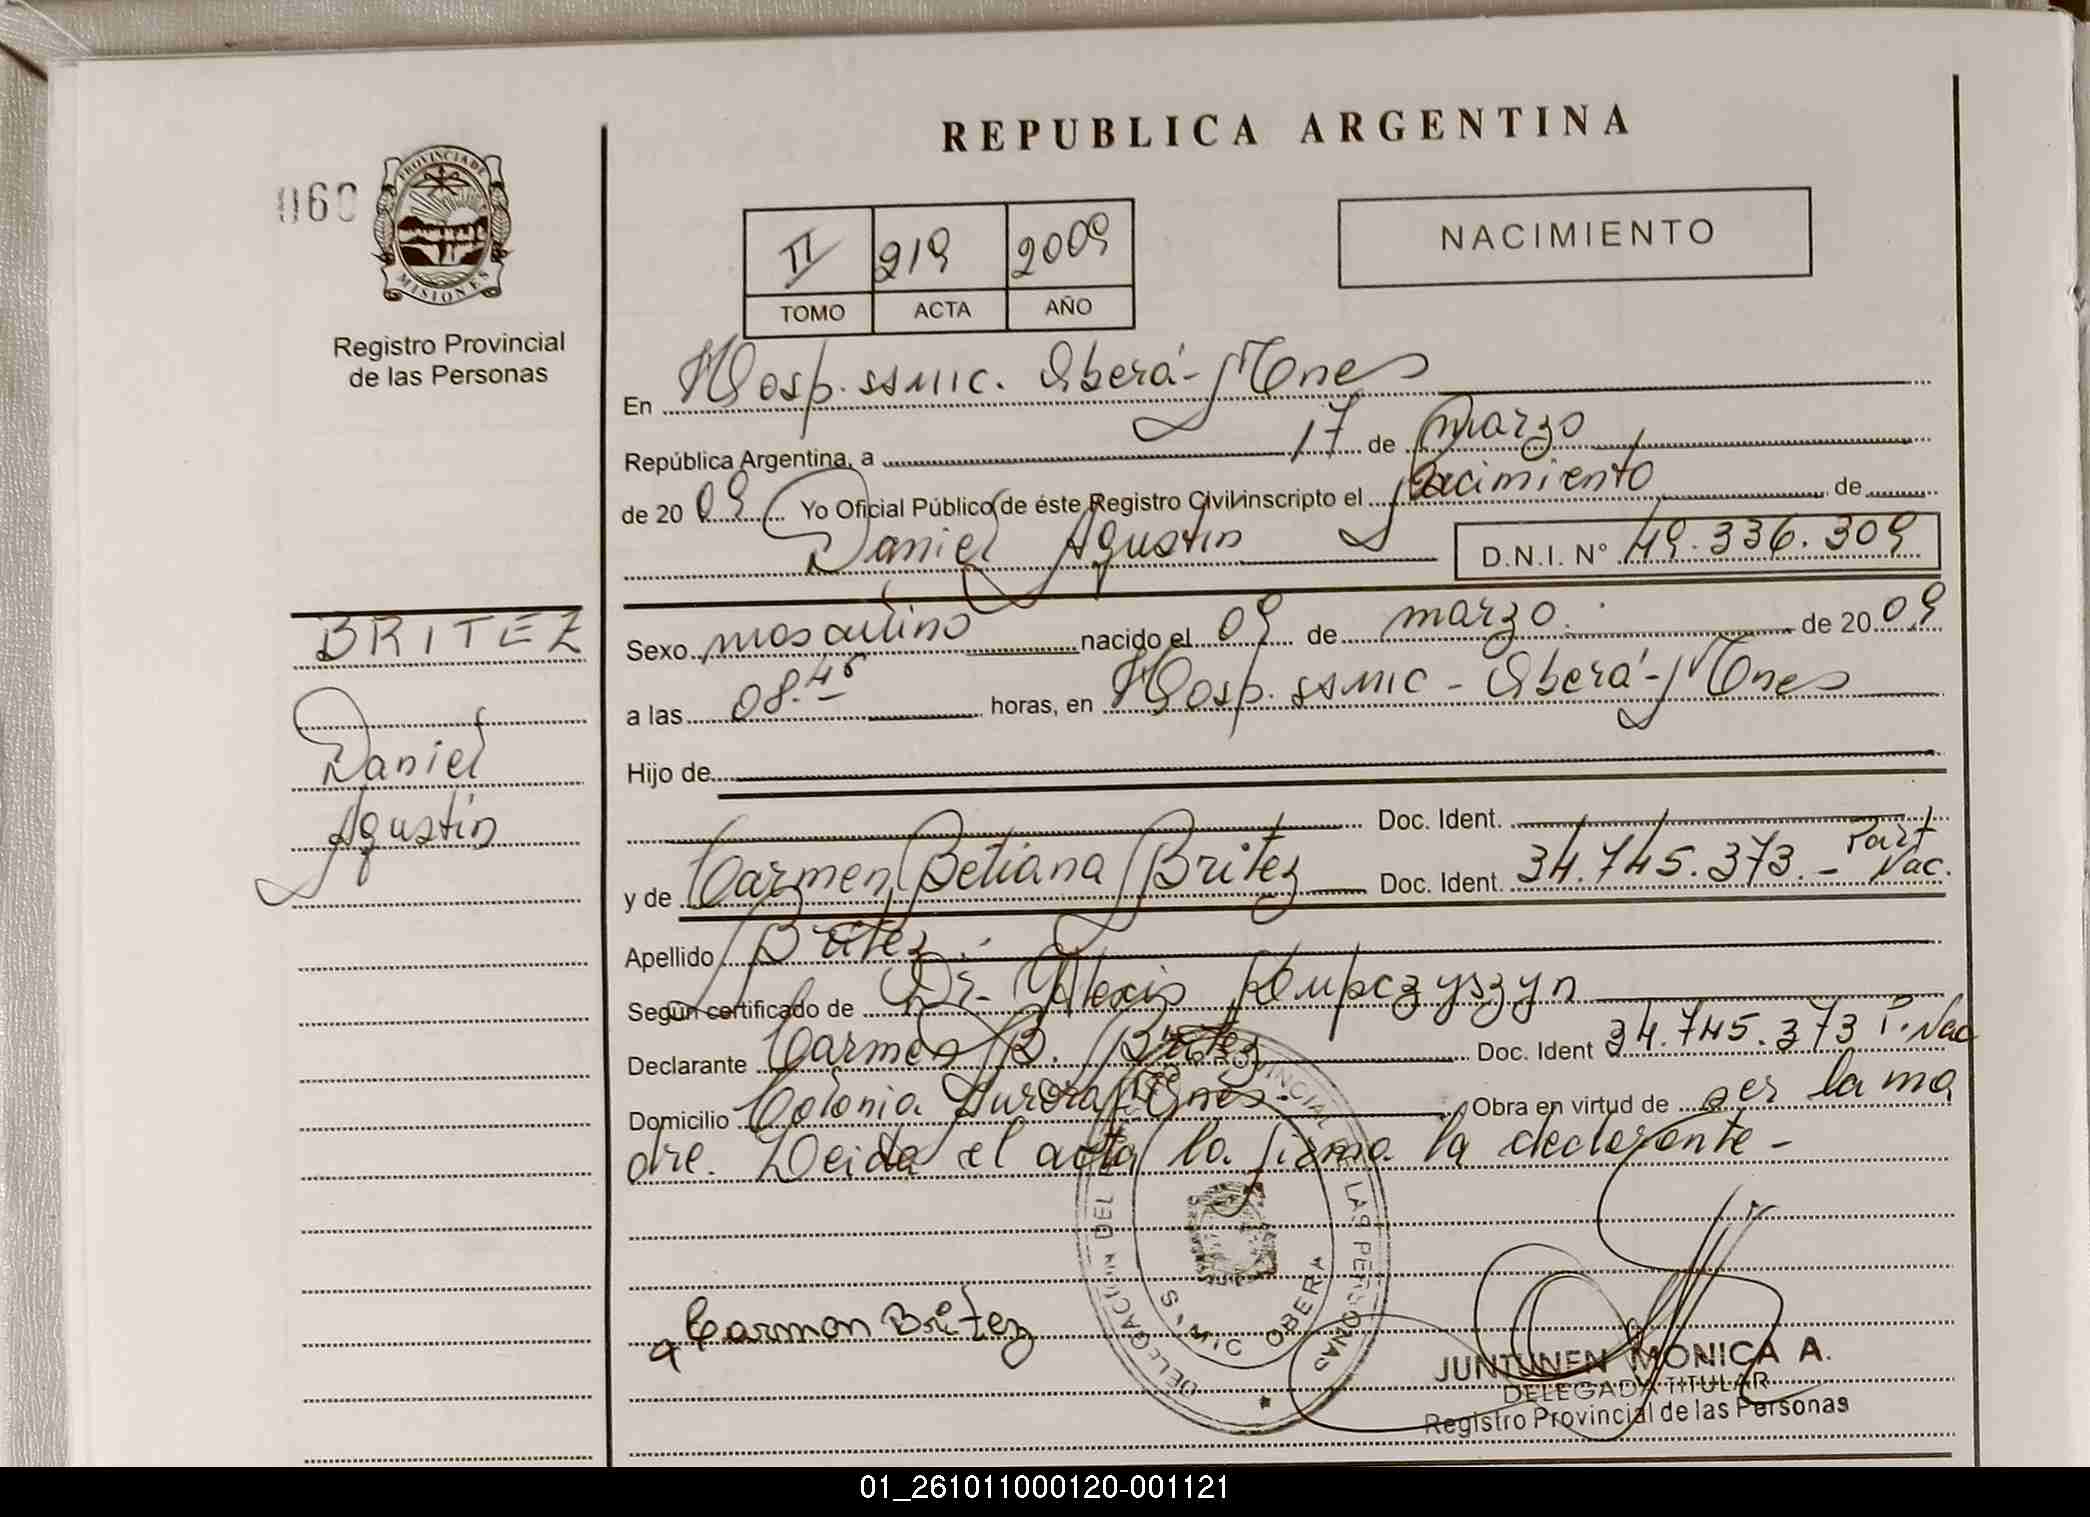 REPUBLICA ARGENTINA
060
PROVINCIA DE
MISIONES
Registro Provincial
de las Personas
II 219 2009
TOMO ACTA AÑO
NACIMIENTO
En Hosp. SAMIC. Oberá - Mnes
República Argentina, a 17 de marzo
de 2009 Yo Oficial Público de éste Registro Civil inscripto el Nacimiento de
Daniel Agustín D.N.I. Nº 49.336.309
BRITEZ
Daniel
Agustín
Sexo masculino nacido el 09 de marzo. de 2009
a las 08.45 horas, en Hosp. SAMIC - Oberá - Mnes
Hijo de
Doc. Ident.
y de Carmen Betiana Britez Doc. Ident. 34.745.373.- Part Nac.
Apellido Britez.
Según certificado de Dr. Alexis Kupczyszyn
Declarante Carmen B. Britez Doc. Ident 34.745.373 P. Nac
Domicilio Colonia Aurora Mnes. Obra en virtud de ser la ma
dre. Leida el acta la firma la declarante -
DELEGACION DEL PROVINCIAL LAS PERSONAS
SAMIC OBERA
Carmen Britez
JUNTUNEN MONICA A.
DELEGADA TITULAR
Registro Provincial de las Personas
01_261011000120-001121